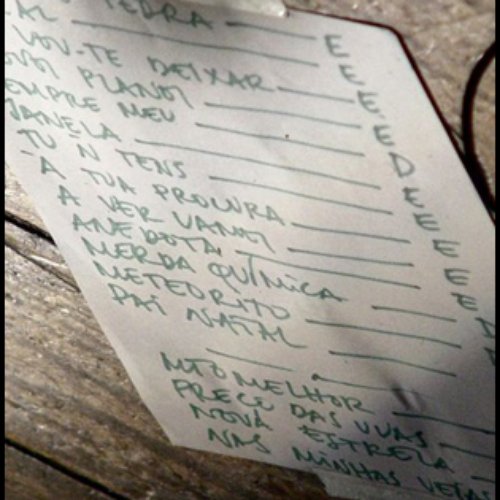 PEDRA E
AL E
VOU-TE DEIXAR E
PLANOS E
SEMPRE MEU D
JANELA E
TU N TENS E
A TUA PROCURA E
A VER VANOS E
ANEDOTA E
MERDA QUÍMICA D
METEORITO
PAI NATAL
MTO MELHOR
PREÇO DAS UVAS
NOVA ESTRELA
NAS MINHAS